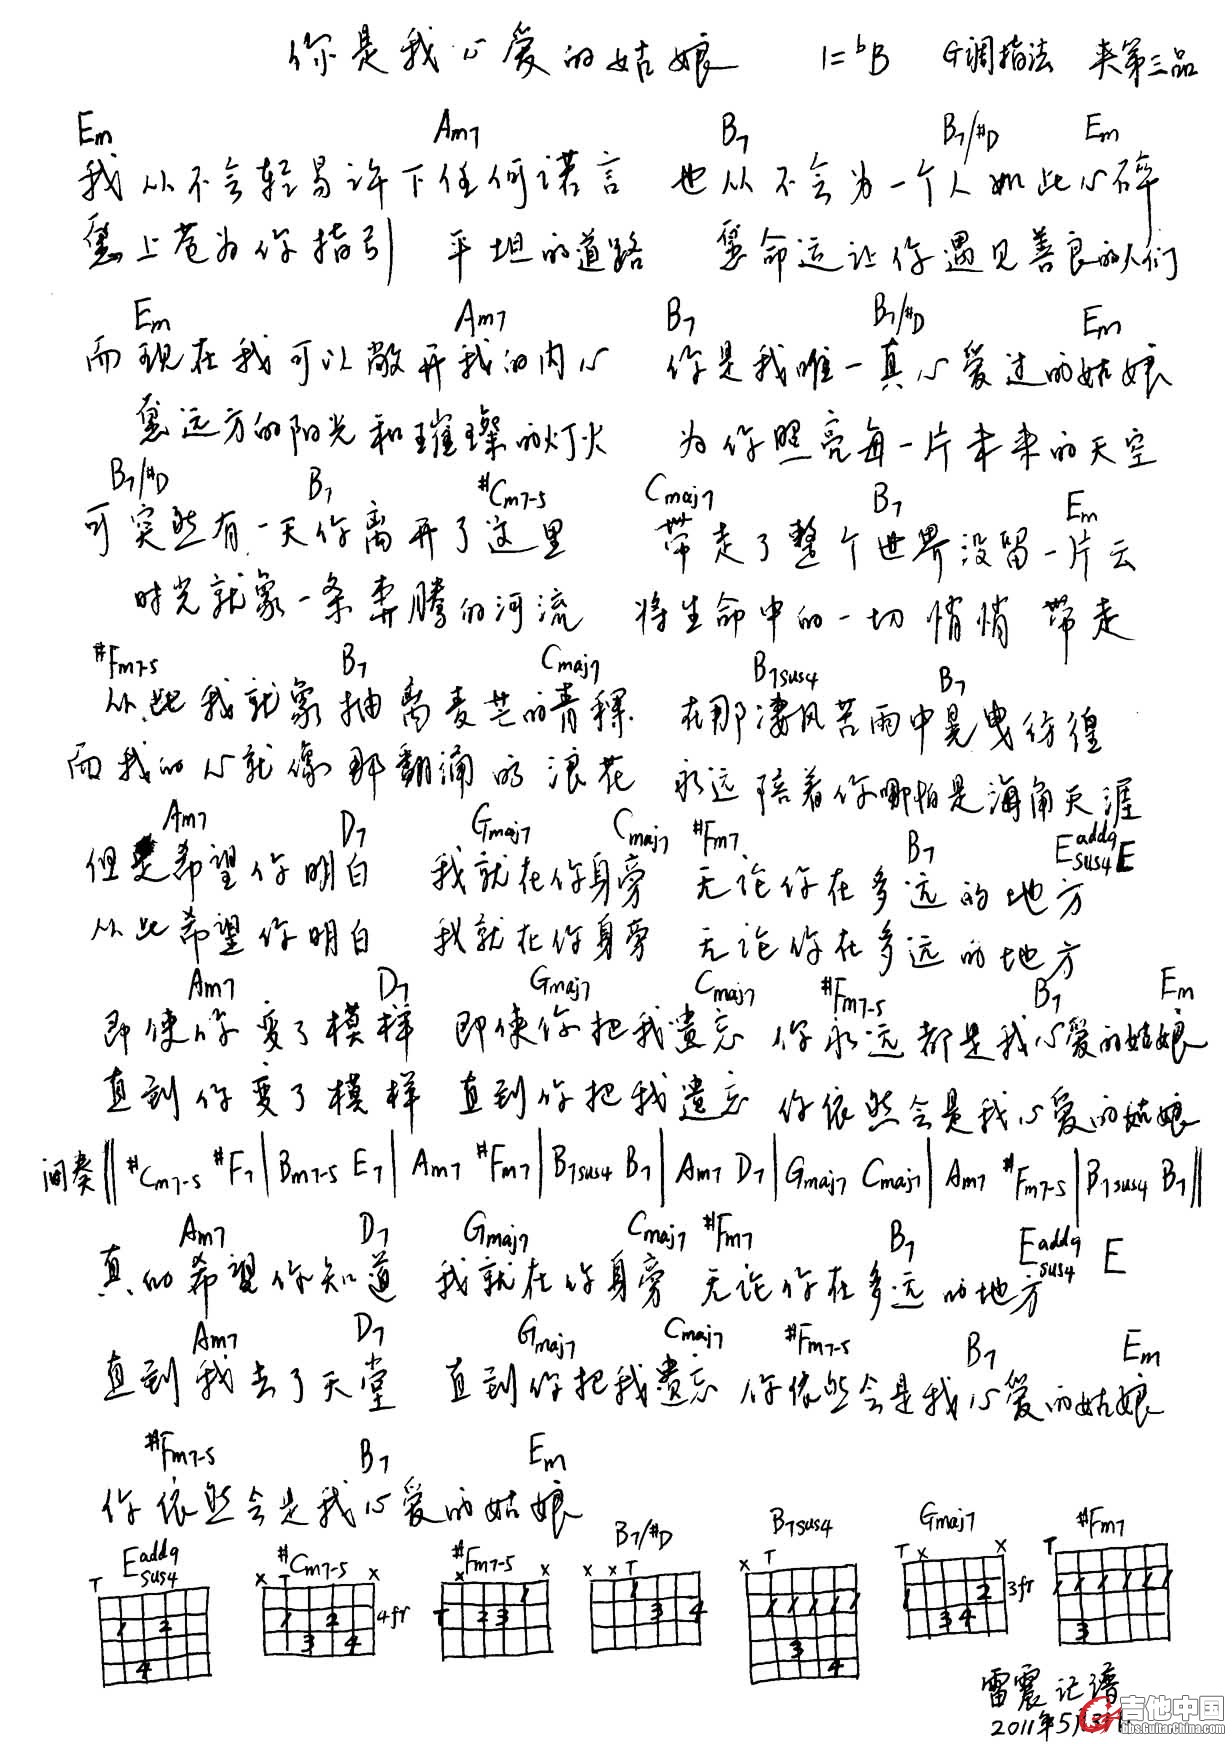 你是我心爱的姑娘 1=ᵇB G调指法 夹第三品
Em Am7 B7 B7/#D Em
我从不会轻易许下任何诺言 也从不会为一个人如此心碎
愿上苍为你指引 平坦的道路 愿命运让你遇见善良的人们
Em Am7 B7 B7/#D Em
而现在我可以敞开我的内心 你是我唯一真心爱过的姑娘
愿远方的阳光和璀璨的灯火 为你照亮每一片未来的天空
B7/#D B7 #Cm7-5 Cmaj7 B7 Em
可突然有一天你离开了这里 带走了整个世界没留一片云
时光就象一条奔腾的河流 将生命中的一切悄悄带走
#Fm7-5 B7 Cmaj7 B7sus4 B7
从此我就象抽离麦芒的青稞 在那凄风苦雨中晃曳彷徨
而我的心就像那翻涌的浪花 永远陪着你哪怕是海角天涯
Am7 D7 Gmaj7 Cmaj7 #Fm7 B7 Eadd9sus4 E
但是希望你明白 我就在你身旁 无论你在多远的地方
从此希望你明白 我就在你身旁 无论你在多远的地方
Am7 D7 Gmaj7 Cmaj7 #Fm7-5 B7 Em
即使你变了模样 即使你把我遗忘 你永远都是我心爱的姑娘
直到你变了模样 直到你把我遗忘 你依然会是我心爱的姑娘
间奏 ‖ #Cm7-5 #F7 | Bm7-5 E7 | Am7 #Fm7 | B7sus4 B7 | Am7 D7 | Gmaj7 Cmaj7 | Am7 #Fm7-5 | B7sus4 B7 ‖
Am7 D7 Gmaj7 Cmaj7 #Fm7 B7 Eadd9sus4 E
真的希望你知道 我就在你身旁 无论你在多远的地方
Am7 D7 Gmaj7 Cmaj7 #Fm7-5 B7 Em
直到我去了天堂 直到你把我遗忘 你依然会是我心爱的姑娘
#Fm7-5 B7 Em
你依然会是我心爱的姑娘
Eadd9sus4 #Cm7-5 #Fm7-5 B7/#D B7sus4 Gmaj7 #Fm7
T × T × × × × × T × T T × × T
1 2 1 2 T 2 3 1 1 1 1 1 1 1 1 2 3fr 1 1 1 1 1 1
4 3 4 4fr 3 4 3 4 3 4 3
雷震记谱
2011年5月
吉他中国
bbs.GuitarChina.com